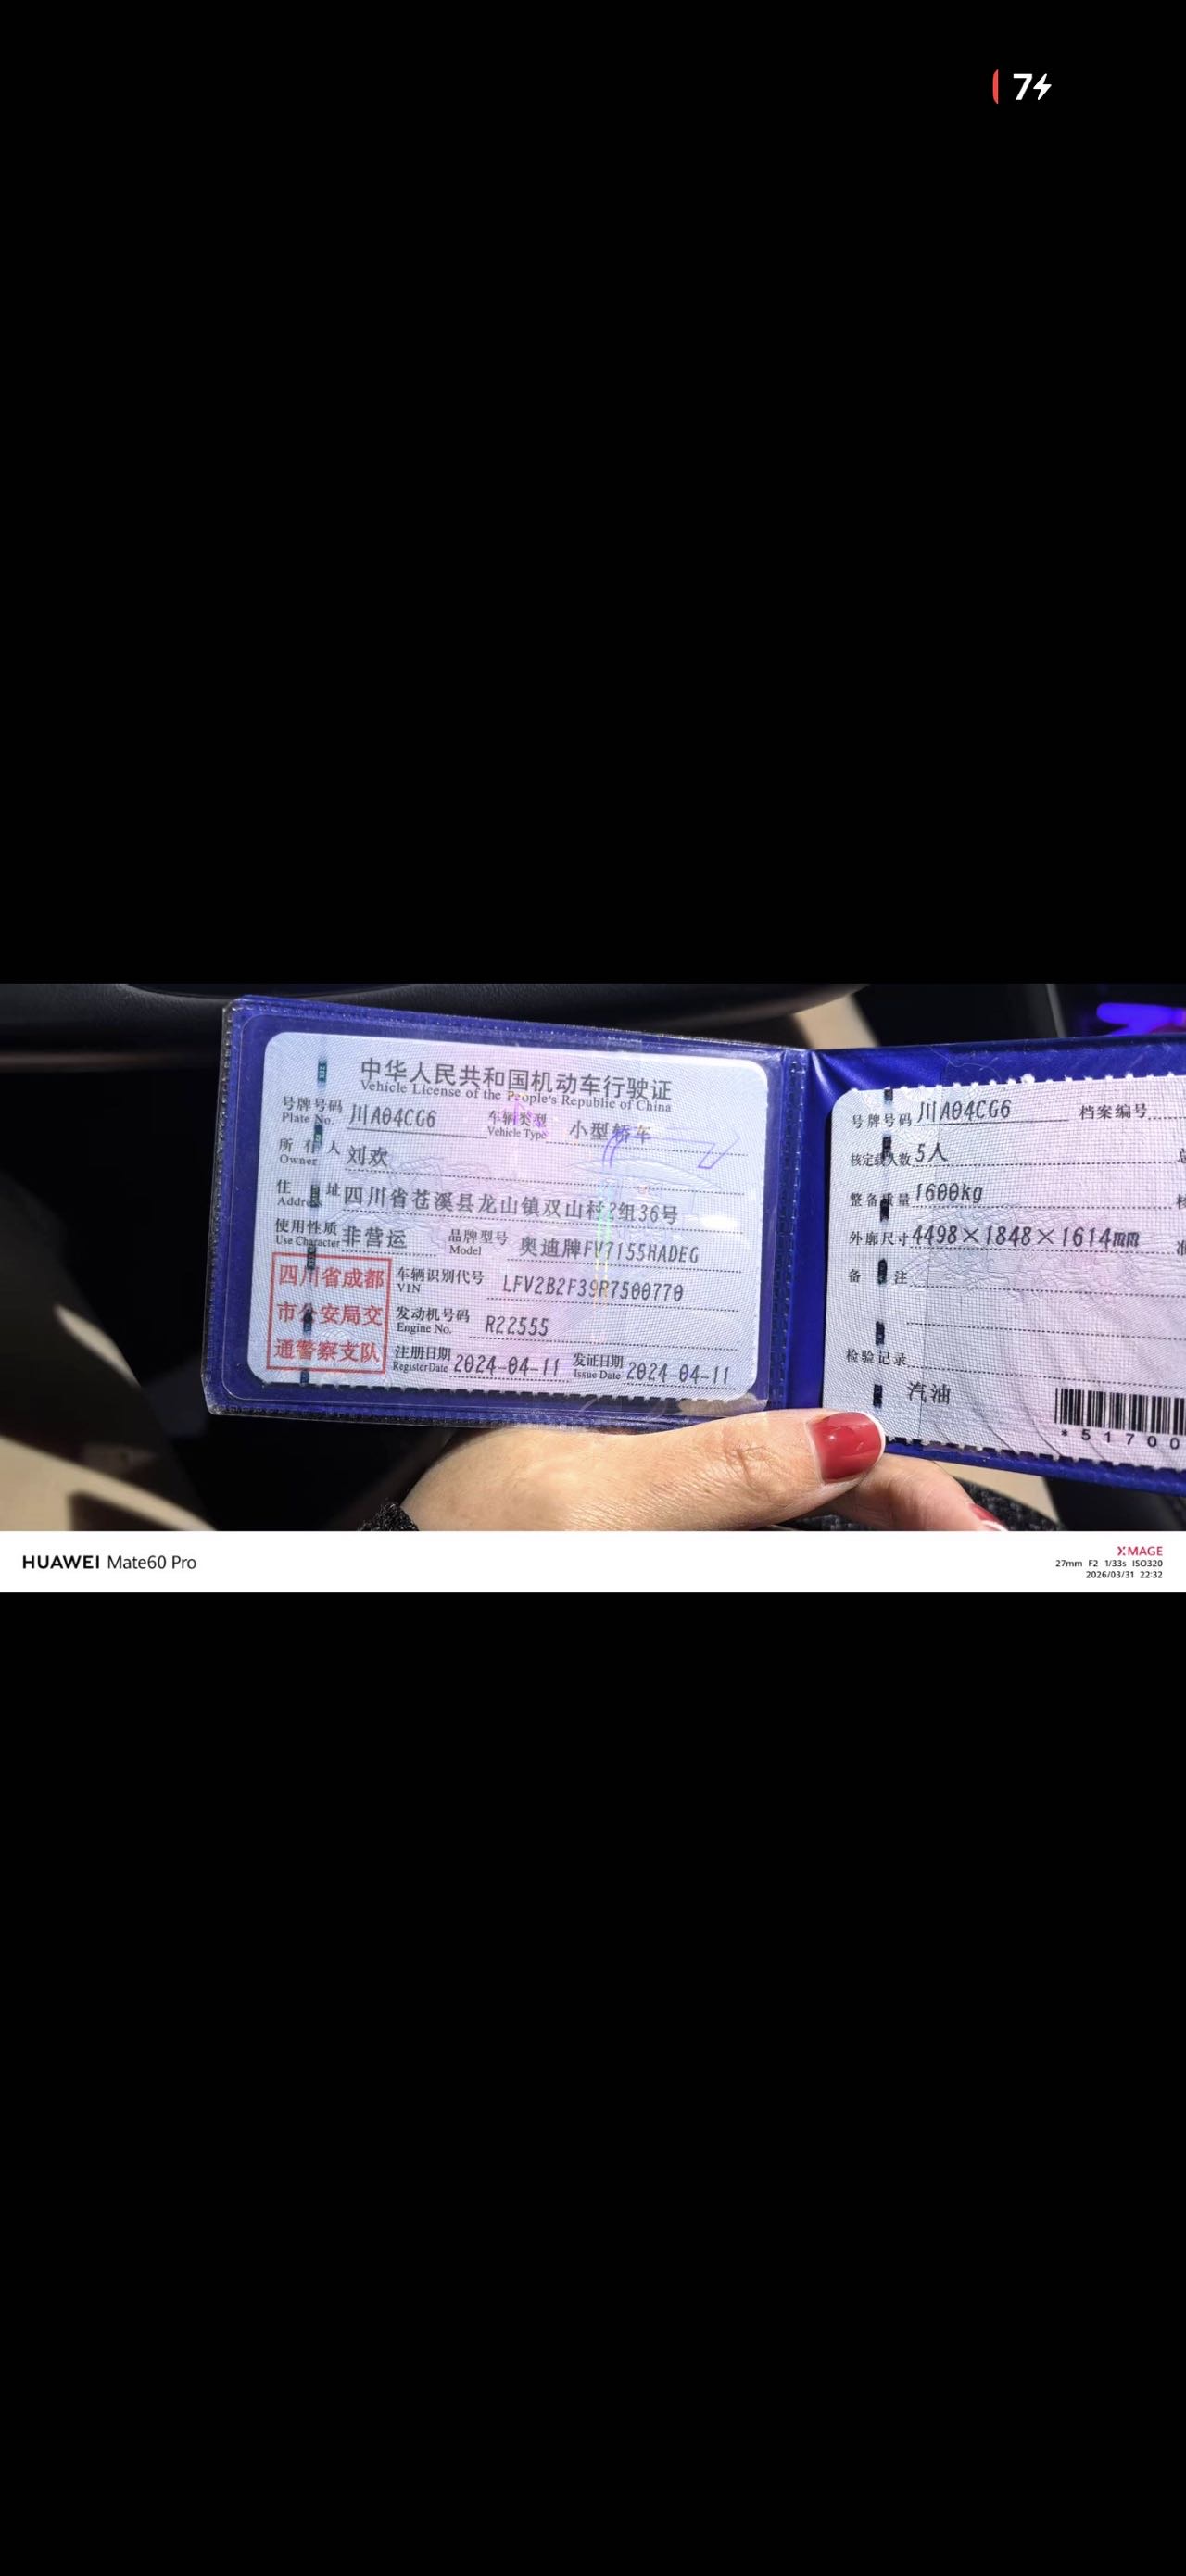 7
中华人民共和国机动车行驶证
Vehicle License of the People's Republic of China
号牌号码 川A04CG6 车辆类型 小型轿车
Plate No. Vehicle Type
所有人 刘欢
Owner
住址 四川省苍溪县龙山镇双山村2组36号
Address
使用性质 非营运 品牌型号 奥迪牌FV7155HADEG
Use Character Model
四川省成都
市公安局交
通警察支队
车辆识别代号 LFV2B2F39R7500770
VIN
发动机号码 R22555
Engine No.
注册日期 2024-04-11 发证日期 2024-04-11
Register Date Issue Date
号牌号码 川A04CG6 档案编号
核定载人数 5人
整备质量 1600kg
外廓尺寸 4498×1848×1614mm
备注
检验记录
汽油
*51700
HUAWEI Mate60 Pro
XMAGE
27mm F2 1/33s ISO320
2026/03/31 22:32